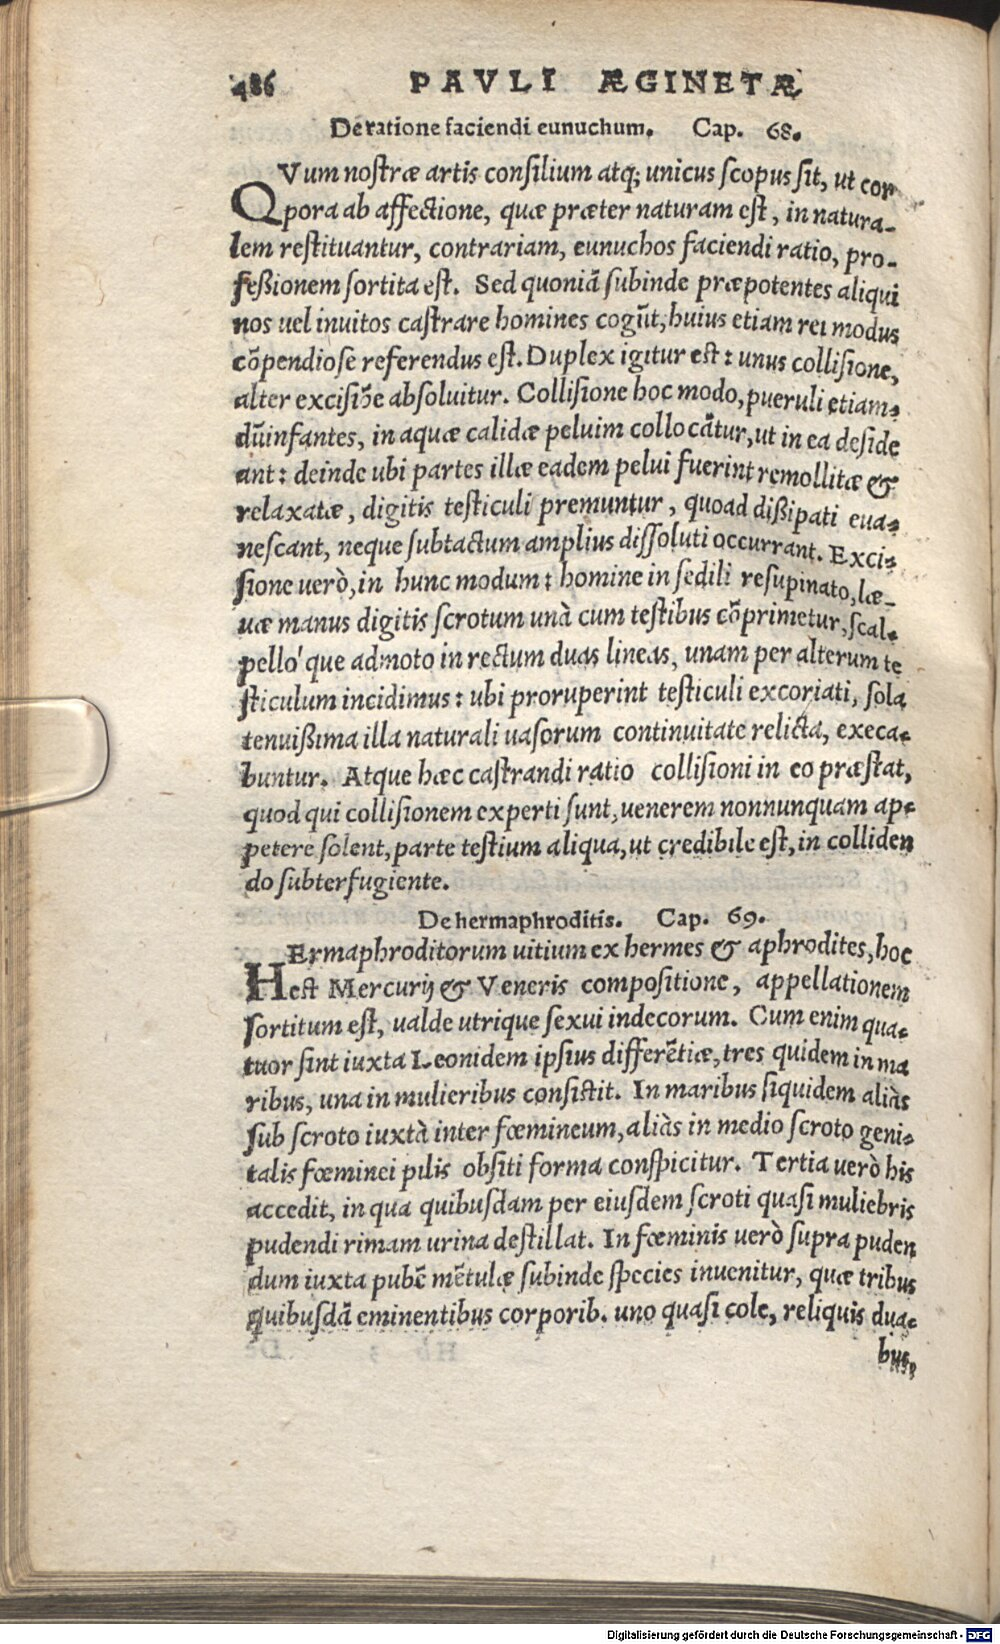 486 PAVLI ÆGINETÆ
De ratione faciendi eunuchum. Cap. 68.
QVum nostræ artis consilium atq; unicus scopus sit, ut cor
pora ab affectione, quæ præter naturam est, in natura-
lem restituantur, contrariam, eunuchos faciendi ratio, pro-
feßionem sortita est. Sed quoniã subinde præpotentes aliqui
nos uel inuitos castrare homines cogũt, huius etiam rei modus
cõpendiose referendus est. Duplex igitur est: unus collisione,
alter excisiõe absoluitur. Collisione hoc modo, pueruli etiam-
dũ infantes, in aquæ calidæ peluim collocãtur, ut in ea deside
ant: deinde ubi partes illæ eadem pelui fuerint remollitæ &
relaxatæ, digitis testiculi premuntur, quoad dißipati eua-
nescant, neque sub tactum amplius dissoluti occurrant. Exci-
sione uerò, in hunc modum: homine in sedili resupinato, læ-
uæ manus digitis scrotum unà cum testibus cõprimetur, scal-
pello'que admoto in rectum duas lineas, unam per alterum te
sticulum incidimus: ubi proruperint testiculi excoriati, sola
tenuißima illa naturali uasorum continuitate relicta, execa-
buntur. Atque hæc castrandi ratio collisioni in eo præstat,
quod qui collisionem experti sunt, uenerem nonnunquam ap-
petere solent, parte testium aliqua, ut credibile est, in colliden
do subterfugiente.
De hermaphroditis. Cap. 69.
HErmaphroditorum uitium ex hermes & aphrodites, hoc
est Mercurij & Veneris compositione, appellationem
sortitum est, ualde utrique sexui indecorum. Cum enim qua-
tuor sint iuxta Leonidem ipsius differẽtiæ, tres quidem in ma
ribus, una in mulieribus consistit. In maribus siquidem aliàs
sub scroto iuxtà inter fœmineum, aliàs in medio scroto geni-
talis fœminei pilis obsiti forma conspicitur. Tertia uerò his
accedit, in qua quibusdam per eiusdem scroti quasi muliebris
pudendi rimam urina destillat. In fœminis uerò supra puden
dum iuxta pubẽ mẽtulæ subinde species inuenitur, quæ tribus
quibusdã eminentibus corporib. uno quasi cole, reliquis dua-
bus,
Digitalisierung gefördert durch die Deutsche Forschungsgemeinschaft - DFG